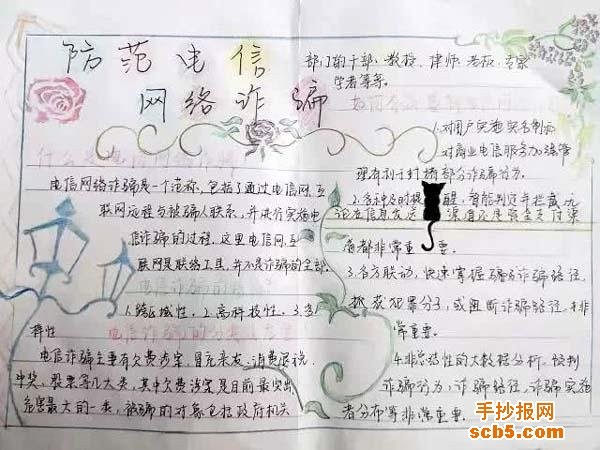 防范电信
网络诈骗
什么是电信网络诈骗
电信网络诈骗是一个范称,包括了通过电信网、互
联网远程与被骗人联系,并进行实施电
信诈骗的过程,这里电信网、互
联网是联络工具,并不是诈骗的全部。
电信诈骗的特
1.跨区域性,2.高科技性,3.多
样性
电信诈骗的分类
电信诈骗主要有欠费涉案,冒充亲友,消费退税,
中奖,股票等几大类,其中欠费涉案是目前最突出
危害最大的一类,被骗的对象包括政府机关
部门的干部、教授、律师、老板、专家
学者等等。
1.对用户实施实名制而
对商业电信服务加强管
理有利于封堵部分诈骗行为。
2.多种及时提醒,智能判定并拦截,无
论在信息发送渠道还是资金支付渠
道都非常重要。
3.各方联动,快速掌握骗诈骗路径,
抓获犯罪分子,或阻断诈骗路径,非
常重要。
4.非总结性的大数据分析,预判
诈骗行为,诈骗路径,诈骗实施
者分布等非常重要。
手抄报网
scb5.com